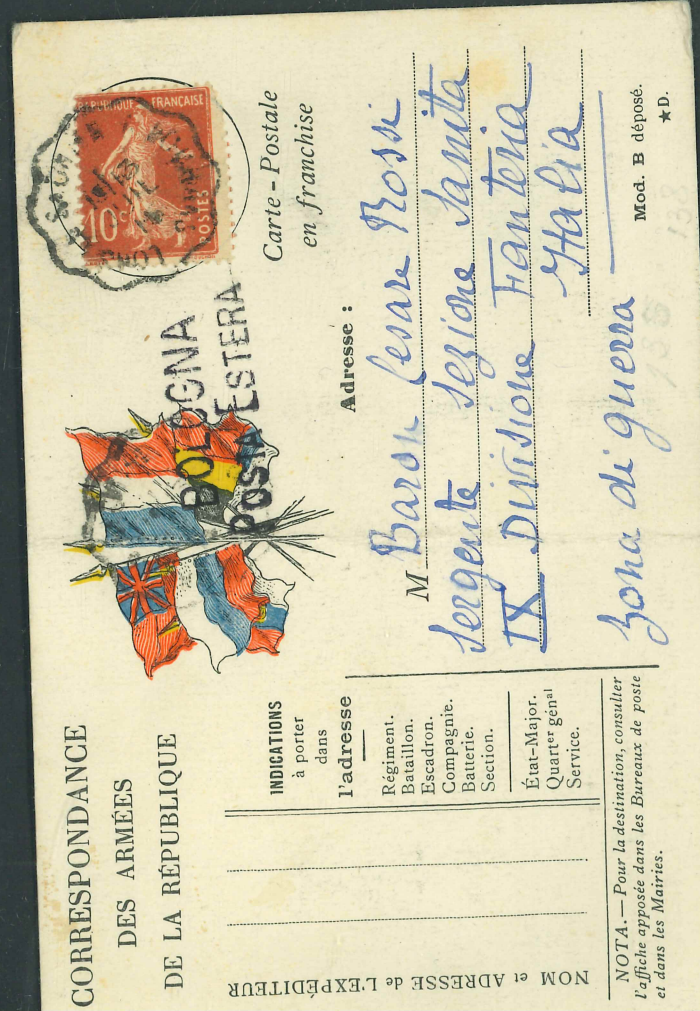 CORRESPONDANCE
DES ARMÉES
DE LA RÉPUBLIQUE
RÉPUBLIQUE FRANÇAISE
10c
POSTES
BOLOGNA
POSTA ESTERA
Carte-Postale
en franchise
NOM et ADRESSE de L'EXPÉDITEUR
INDICATIONS
à porter
dans
l'adresse
Régiment.
Bataillon.
Escadron.
Compagnie.
Batterie.
Section.
État-Major.
Quartier génal
Service.
Adresse :
M Baron Cesare Rossi
Sergente Sezione Sanita
IX Divisione Fanteria
Italia
Zona di guerra
Mod. B déposé.
★D.
NOTA.—Pour la destination, consulter
l'affiche apposée dans les Bureaux de poste
et dans les Mairies.